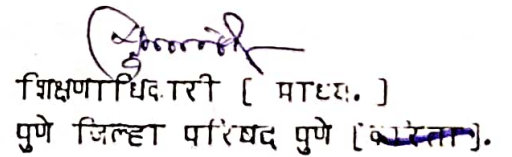 शिक्षणाधिकारी [ माध्य. ]
पुणे जिल्हा परिषद पुणे